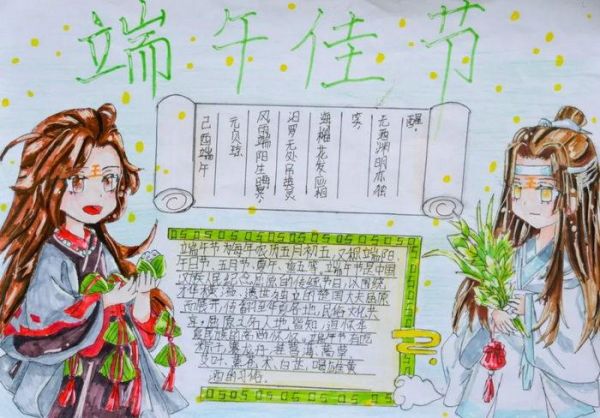 端午佳节
己酉端午
元贝琼
风雨端阳生晦冥
汨罗无处吊英灵
海榴花发应相
笑
无酒渊明亦独
醒。
王
王
端午节为每年农历五月初五,又称端阳
午日节、五月节、端午节是中国
汉族人民纪念屈原的传统节日,以围绕
才华横溢、遗世独立的楚国大夫屈原
而展开,传播至华夏各地,民俗文化共
享,屈原之名人尽皆知,追怀
端午节有吃